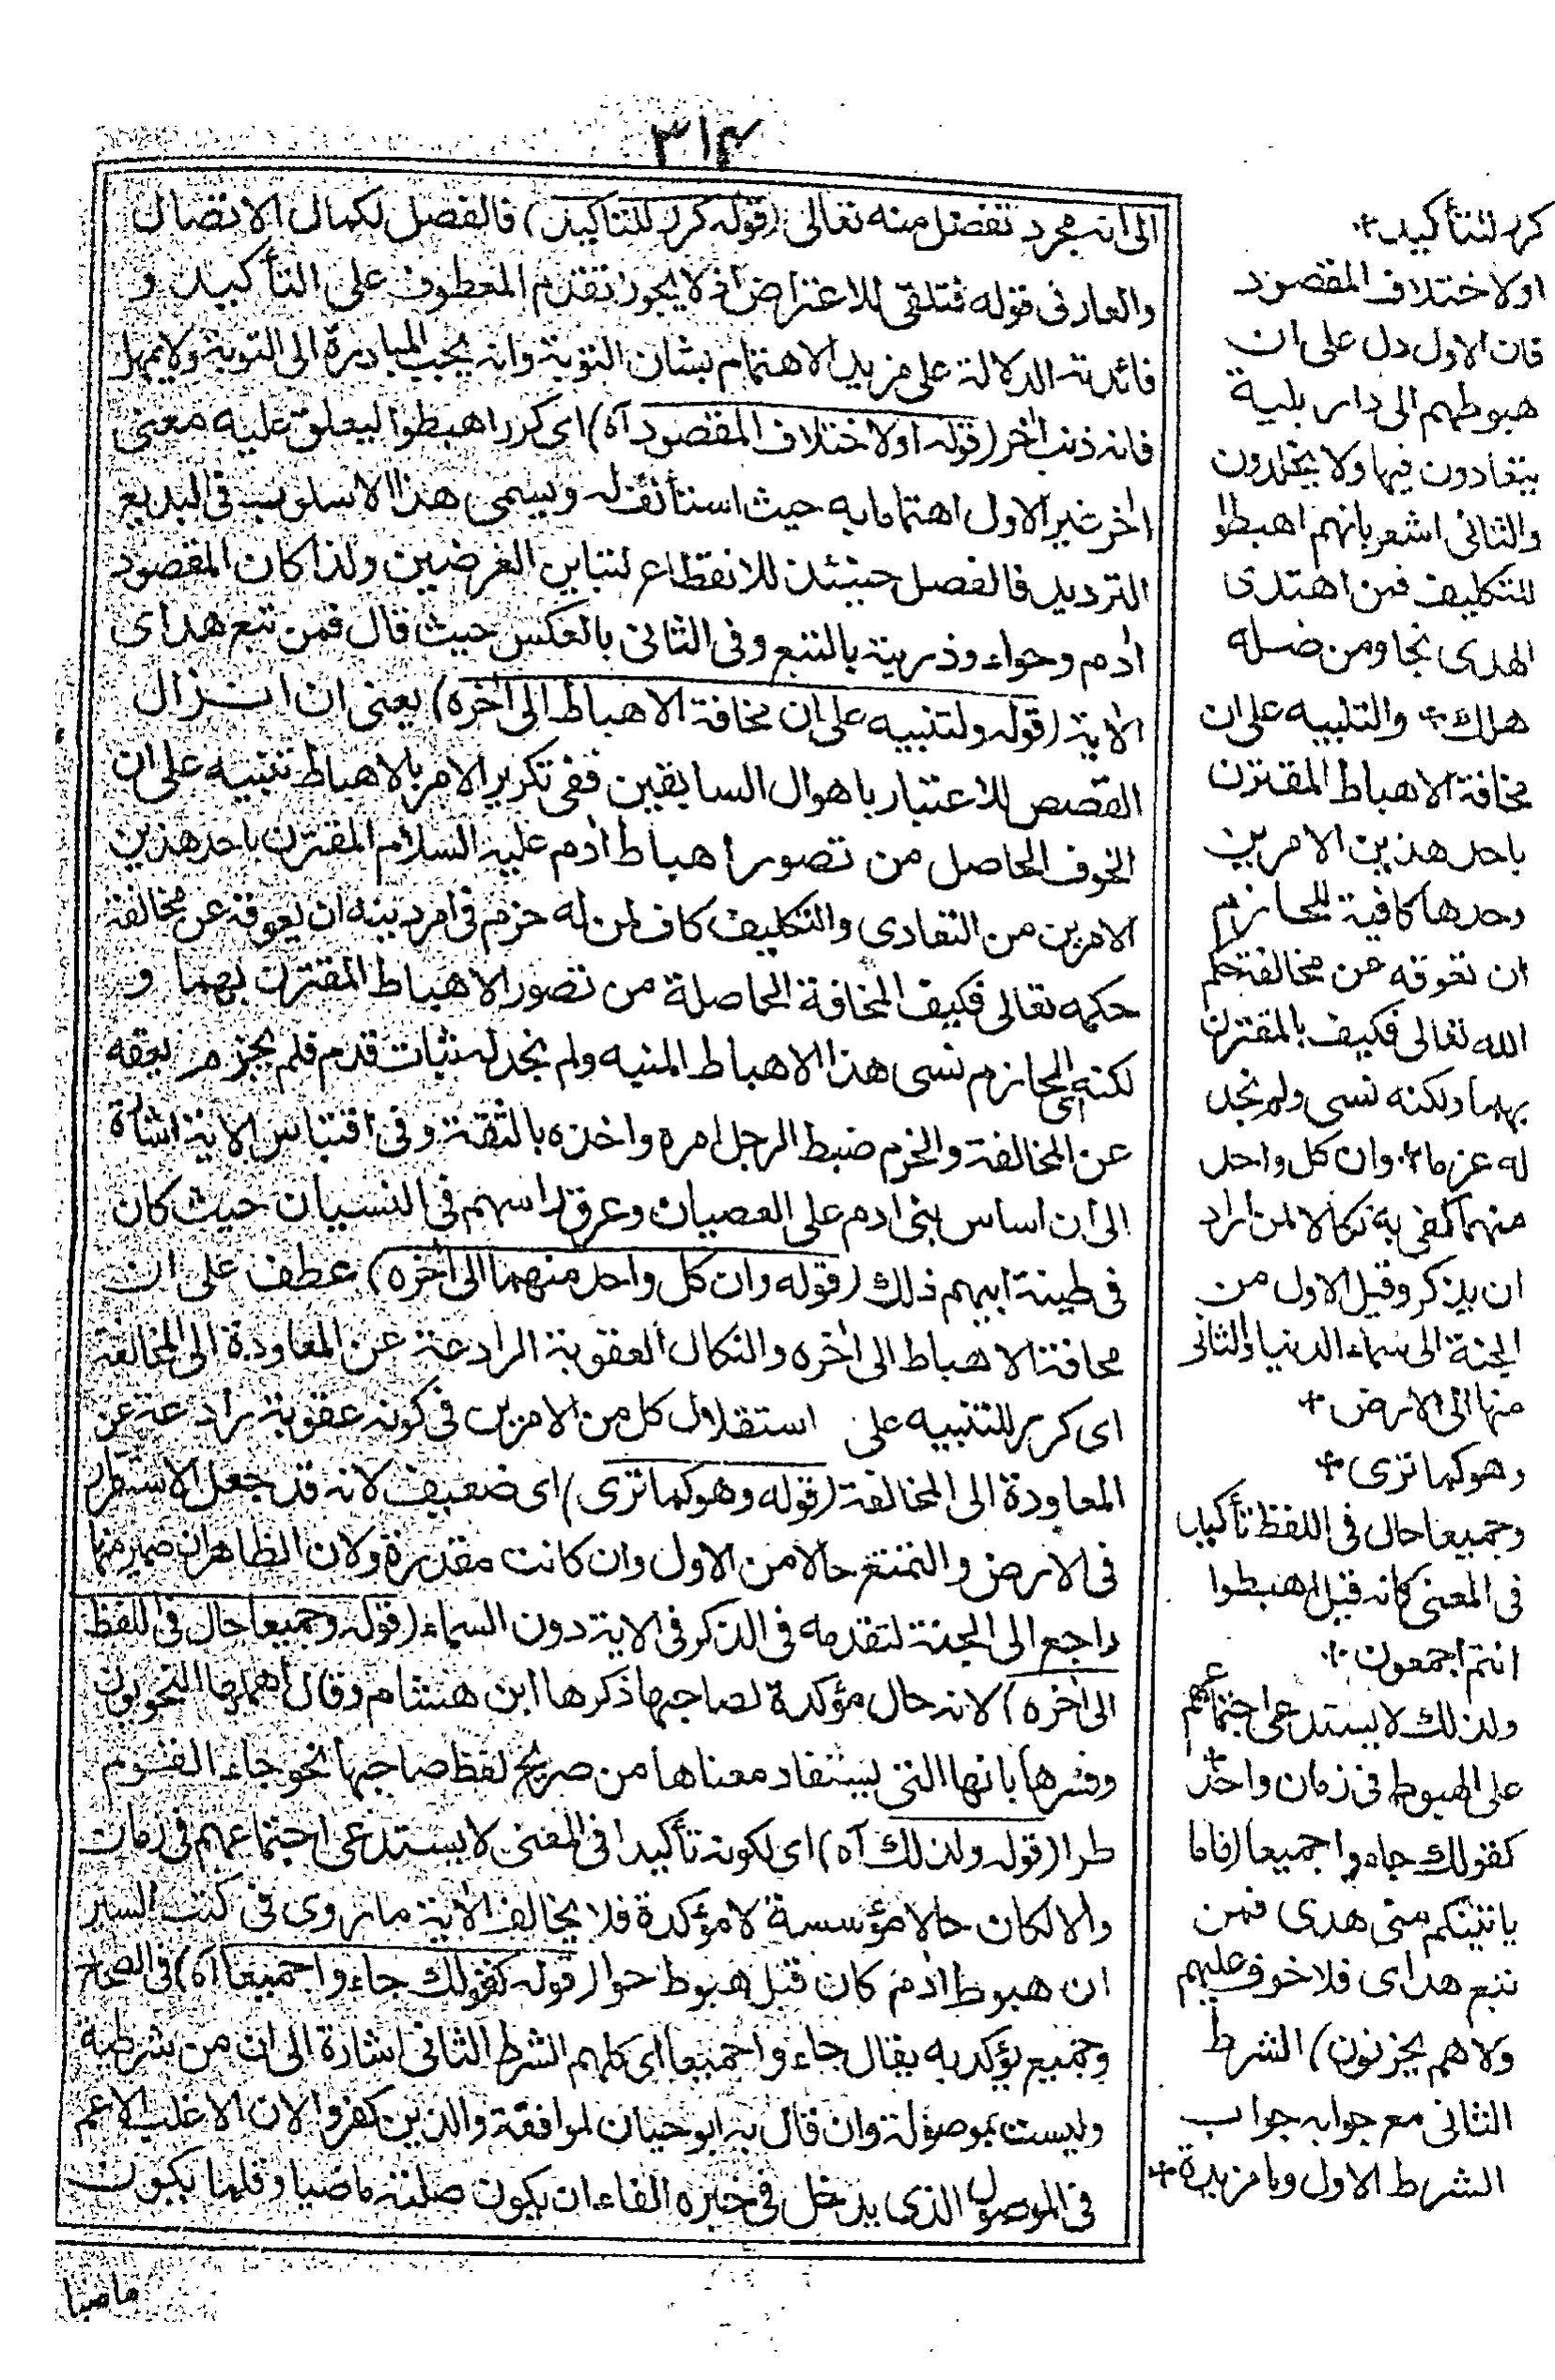 ٣١٤
الى انه مجرد تفضل منه تعالى (قوله كرر للتاكيد) فالفصل لكمال الاتصال
والفاء فى قوله فتلقى للاعتراض اذ لا يجوز تقدم المعطوف على التأكيد و
فائدته الدلالة على مزيد الاهتمام بشان التوبة وانه يجب المبادرة الى التوبة ولا يمهل
فانه ذنب اٰخر (قوله او لاختلاف المقصود آه) اى كرر اهبطوا ليعلق عليه معنى
اٰخر غير الاول اهتماما به حيث استأنف له ويسمى هذا الاسلوب فى البديع
الترديد فالفصل حينئذ للانقطاع لتباين الغرضين ولذا كان المقصود
اٰدم وحواء وذريته بالتبع وفى الثانى بالعكس حيث قال فمن تبع هداى
الاٰية (قوله ولتنبيه على ان مخافة الاهباط الى اٰخره) يعنى ان انزال
القصص للاعتبار باهوال السابقين ففى تكرير الامر بالاهباط تنبيه على ان
الخوف الحاصل من تصور اهباط اٰدم عليه السلام المقترن باحد هذين
الامرين من التعادى والتكليف كاف لمن له حزم فى امر دينه ان يعوقه عن مخالفة
حكمه تعالى فكيف المخافة الحاصلة من تصور الاهباط المقترن بهما و
لكنه اى الحازم نسى هذا الاهباط المنبه ولم نجد له ثبات قدم فلم يجزم بعقه
عن المخالفة والحزم ضبط الرجل امره واخذه بالثقة وفى اقتباس الاٰية اشارة
الى ان اساس بنى ادم على العصيان وعرق راسهم فى النسيان حيث كان
فى طينة ابيهم ذلك (قوله وان كل واحد منهما الى اٰخره) عطف على ان
مخافة الاهباط الى اٰخره والنكال العقوبة الرادعة عن المعاودة الى المخالفة
اى كرر للتنبيه على استقلال كل من الامرين فى كونه عقوبة رادعة عن
المعاودة الى المخالفة (قوله وهو كما ترى) اى ضعيف لانه قد جعل الاستقرار
فى الارض والتمتع حالا من الاول وان كانت مقدرة ولان الظاهر ان ضمير منها
راجع الى الجنة لتقدمه فى الذكر فى الاية دون السماء (قوله وجميعا حال فى اللفظ
الى اٰخره) لانه حال مؤكدة لصاحبها ذكرها ابن هشام وقال اهملها النحويون
وفسرها بانها التى يستفاد معناها من صريح لفظ صاحبها نحو جاء القوم
طرا (قوله ولذلك آه) اى لكونه تأكيدا فى المعنى لا يستدعى اجتماعهم فى زمان
والا لكان حالا مؤسسة لا مؤكدة فلا يخالف الاٰية ما روى فى كتب السير
ان هبوط اٰدم كان قبل هبوط حوا (قوله كقولك جاءوا جميعا آه) فى الصحاح
وجميع يؤكد به يقال جاءوا جميعا اى كلهم الشرط الثانى اشارة الى ان من شرطية
وليست بموصولة وان قال به ابو حيان لموافقة والذين كفروا لان الاغلب الاعم
فى الموصول الذى يدخل فى خبره الفاء ان يكون صلته ماضيا وقلما يكون
ماضيا
كرر للتأكيد
او لاختلاف المقصود
فان الاول دل على ان
هبوطهم الى دار بلية
يتعادون فيها ولا يخلدون
والثانى اشعر بانهم اهبطوا
للتكليف فمن اهتدى
الهدى نجا ومن ضله
هلك والتنبيه على ان
مخافة الاهباط المقترن
باحد هذين الامرين
وحدها كافية للحازم
ان تعوقه عن مخالفة حكم
الله تعالى فكيف بالمقترن
بهما ولكنه نسى ولم نجد
له عزما وان كل واحد
منهما كفى به نكالا لمن اراد
ان يذكر وقيل الاول من
الجنة الى سماء الدنيا والثانى
منها الى الارض
وهو كما ترى
وجميعا حال فى اللفظ تأكيد
فى المعنى كانه قيل اهبطوا
انتم اجمعون
ولذلك لا يستدعى اجتماعهم
على الهبوط فى زمان واحد
كقولك جاءوا جميعا (فاما
ياتينكم منى هدى فمن
تبع هداى فلا خوف عليهم
ولا هم يحزنون) الشرط
الثانى مع جوابه جواب
الشرط الاول وما مزيدة